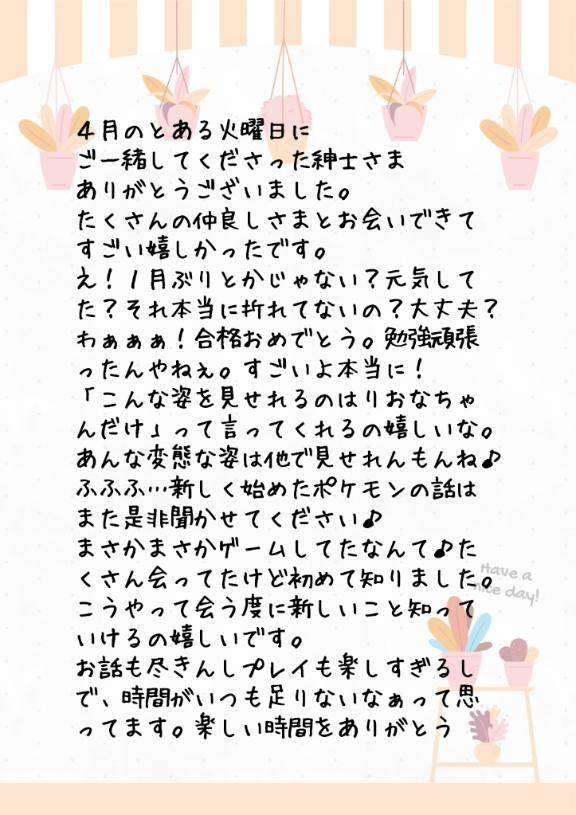 4月のとある火曜日に
ご一緒してくださった紳士さま
ありがとうございました。
たくさんの仲良しさまとお会いできて
すごい嬉しかったです。
え！1月ぶりとかじゃない？元気して
た？それ本当に折れてないの？大丈夫？
わぁぁぁ！合格おめでとう。勉強頑張
ったんやねぇ。すごいよ本当に！
「こんな姿を見せれるのはりおなちゃ
んだけ」って言ってくれるの嬉しいな。
あんな変態な姿は他で見せれんもんね♪
ふふふ…新しく始めたポケモンの話は
また是非聞かせてください♪
まさかまさかゲームしてたなんて♪た
くさん会ってたけど初めて知りました。
こうやって会う度に新しいこと知って
いけるの嬉しいです。
お話も尽きんしプレイも楽しすぎるし
で、時間がいつも足りないなぁって思
ってます。楽しい時間をありがとう
Have a
nice day!